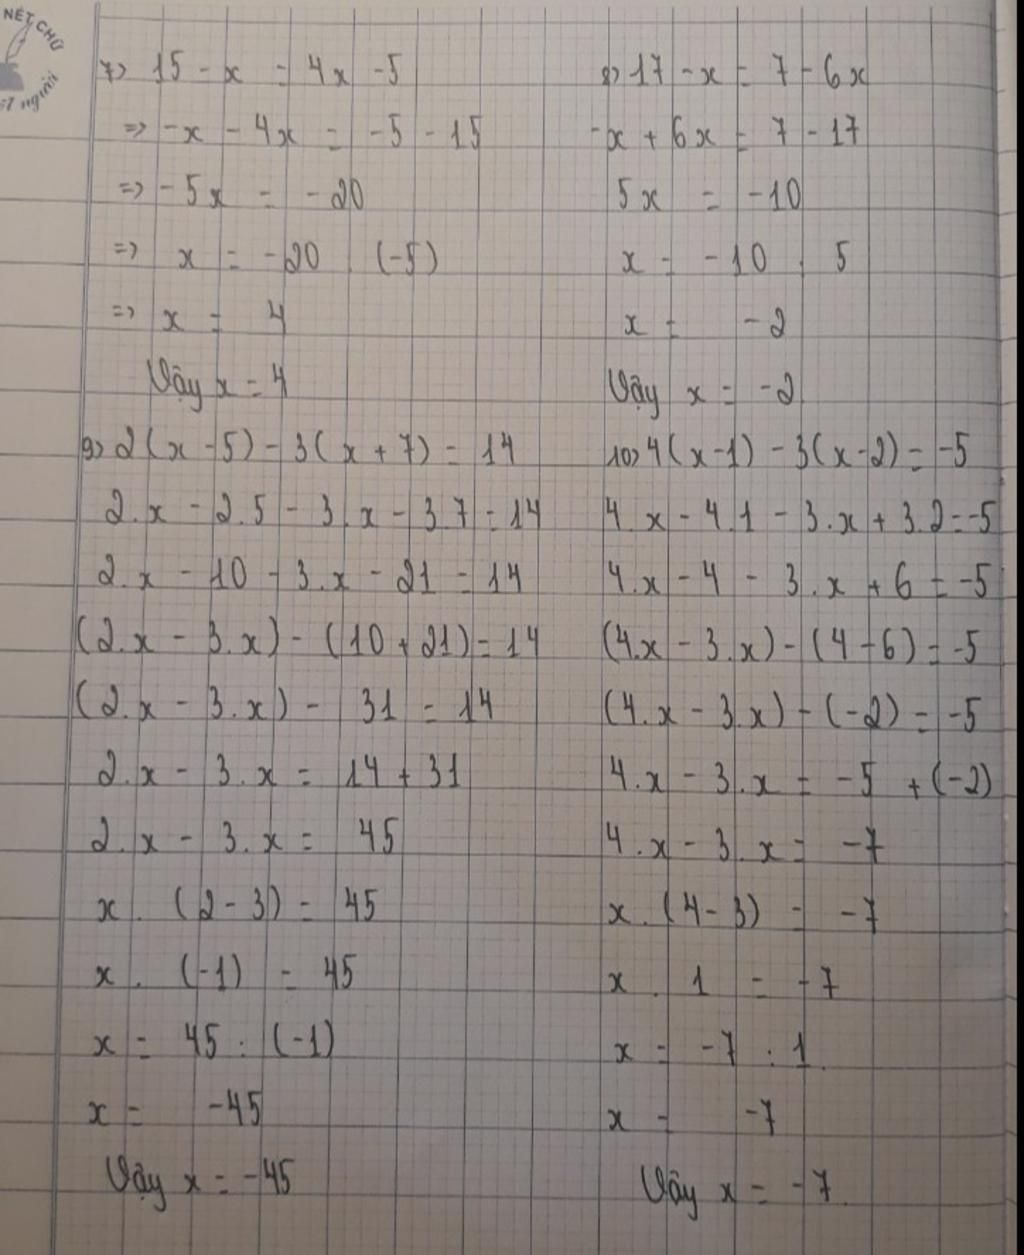 NÉT CHỮ
người
7) 15 - x = 4x - 5
=> -x - 4x = -5 - 15
=> -5x = -20
=> x = -20 : (-5)
=> x = 4
Vậy x = 4
8) 17 - x = 7 - 6x
-x + 6x = 7 - 17
5x = -10
x = -10 : 5
x = -2
Vậy x = -2
9) 2(x - 5) - 3(x + 7) = 14
2.x - 2.5 - 3.x - 3.7 = 14
2.x - 10 - 3.x - 21 = 14
(2.x - 3.x) - (10 + 21) = 14
(2.x - 3.x) - 31 = 14
2.x - 3.x = 14 + 31
2.x - 3.x = 45
x . (2 - 3) = 45
x . (-1) = 45
x = 45 : (-1)
x = -45
Vậy x = -45
10) 4(x - 1) - 3(x - 2) = -5
4.x - 4.1 - 3.x + 3.2 = -5
4.x - 4 - 3.x + 6 = -5
(4.x - 3.x) - (4 - 6) = -5
(4.x - 3.x) - (-2) = -5
4.x - 3.x = -5 + (-2)
4.x - 3.x = -7
x . (4 - 3) = -7
x . 1 = -7
x = -7 : 1
x = -7
Vậy x = -7